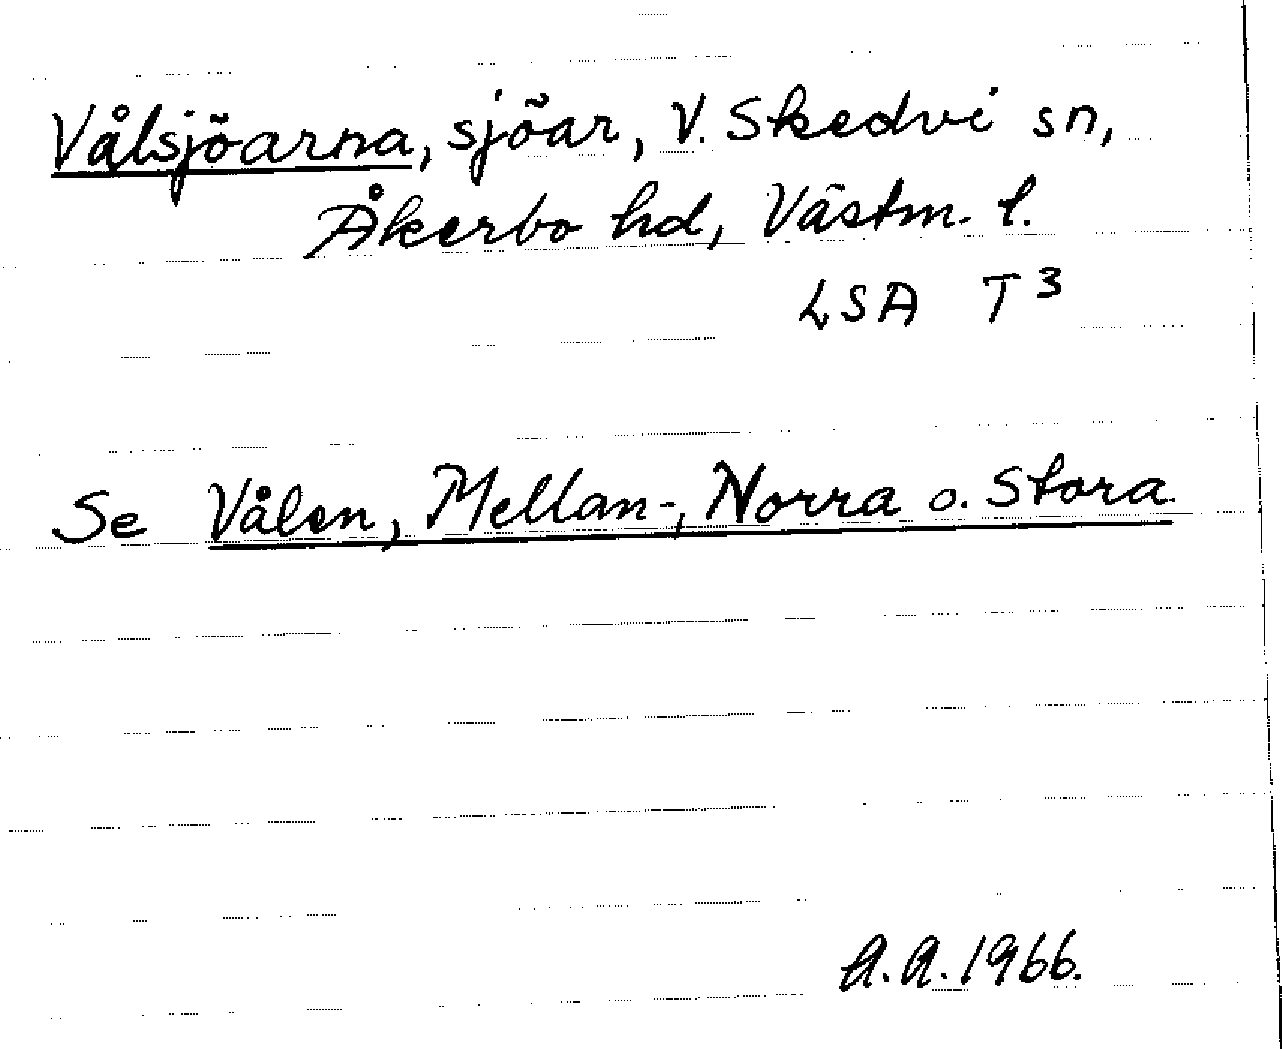 Vålsjöarna, sjöar, V. Skedvi sn,
Åkerbo hd, Västm. l.
LSA T³
Se Vålen, Mellan-, Norra o. Stora
A.A. 1966.